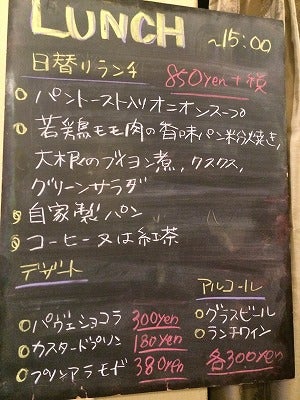 LUNCH ~15:00
日替りランチ 850yen+税
○パントースト入りオニオンスープ
○若鶏モモ肉の香味パン粉焼き,
大根のブイヨン煮, クスクス,
グリーンサラダ
○自家製パン
○コーヒー又は紅茶
デザート
○パヴェショコラ 300yen
○カスタードプリン 180yen
○プリンアラモード 380yen
アルコール
○グラスビール
○ランチワイン
各300yen